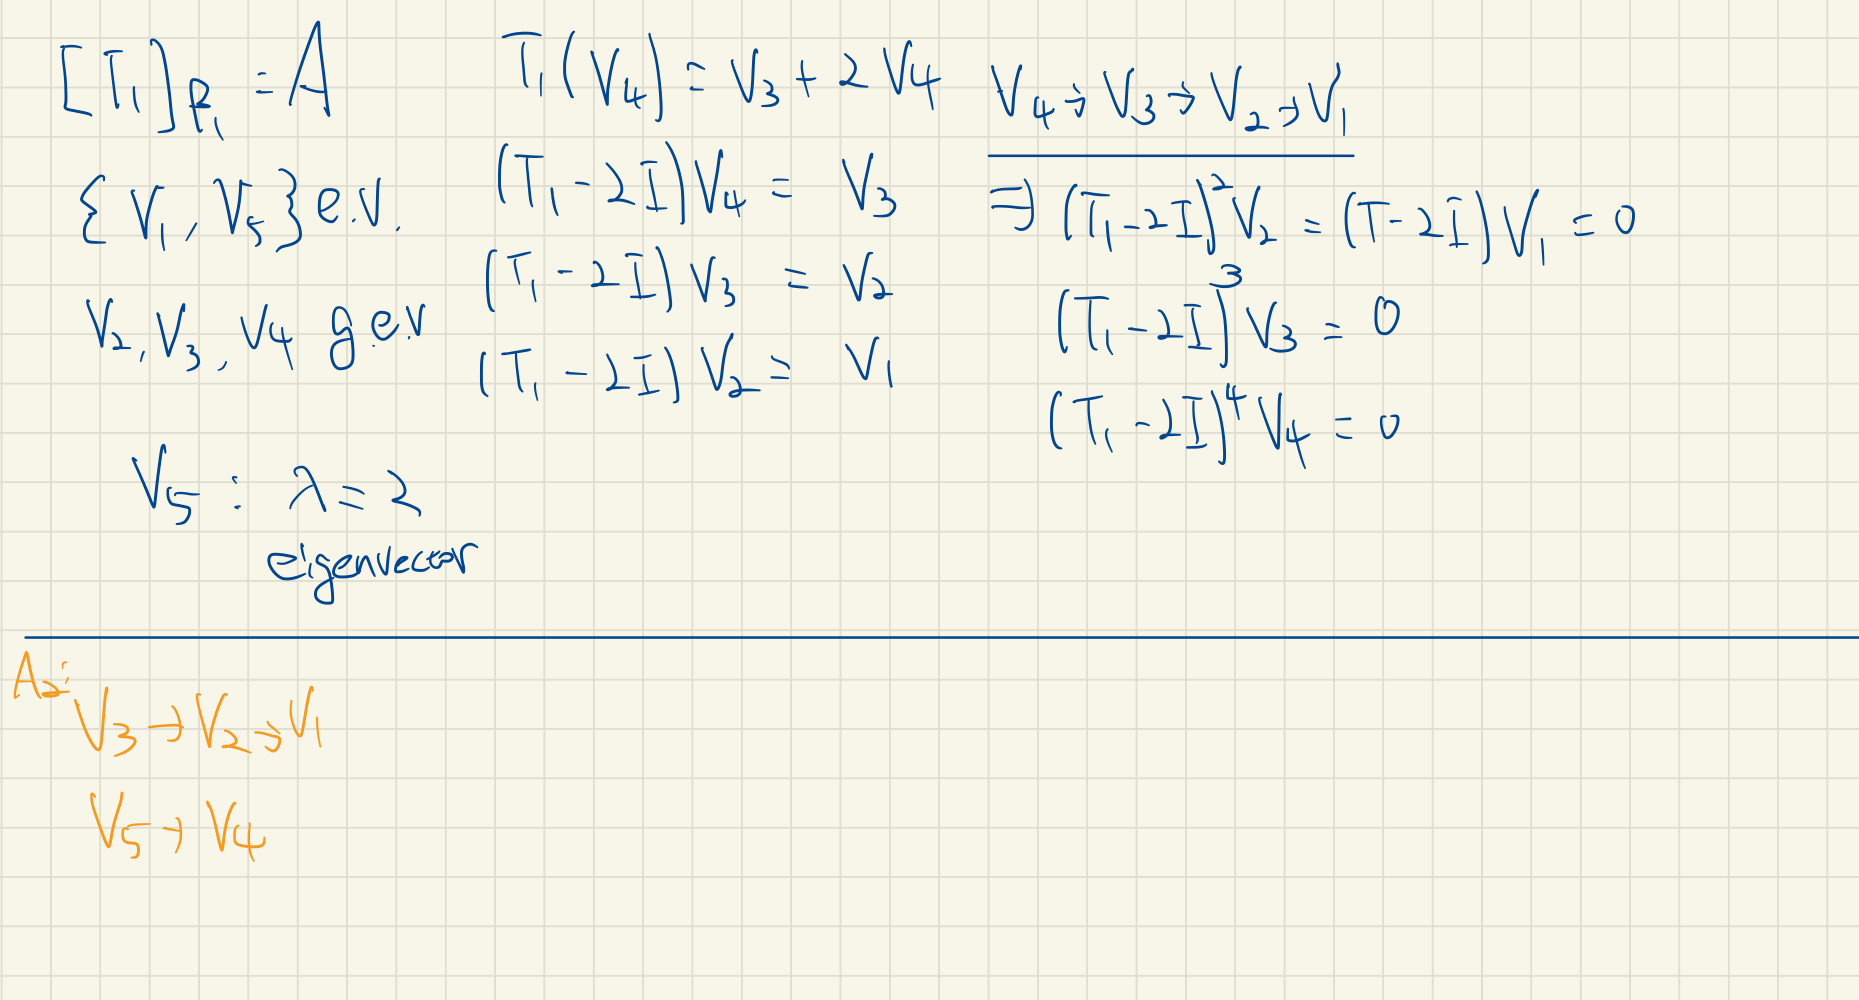 [T₁]β₁ = A
{V₁, V₅} e.v.
V₂, V₃, V₄ g.e.v
V₅ : λ = 2
eigenvector
T₁(V₄) = V₃ + 2V₄
(T₁ - 2I)V₄ = V₃
(T₁ - 2I)V₃ = V₂
(T₁ - 2I)V₂ = V₁
V₄ → V₃ → V₂ → V₁
⇒ (T₁ - 2I)²V₂ = (T - 2I)V₁ = 0
(T₁ - 2I)³V₃ = 0
(T₁ - 2I)⁴V₄ = 0
A₂:
V₃ → V₂ → V₁
V₅ → V₄